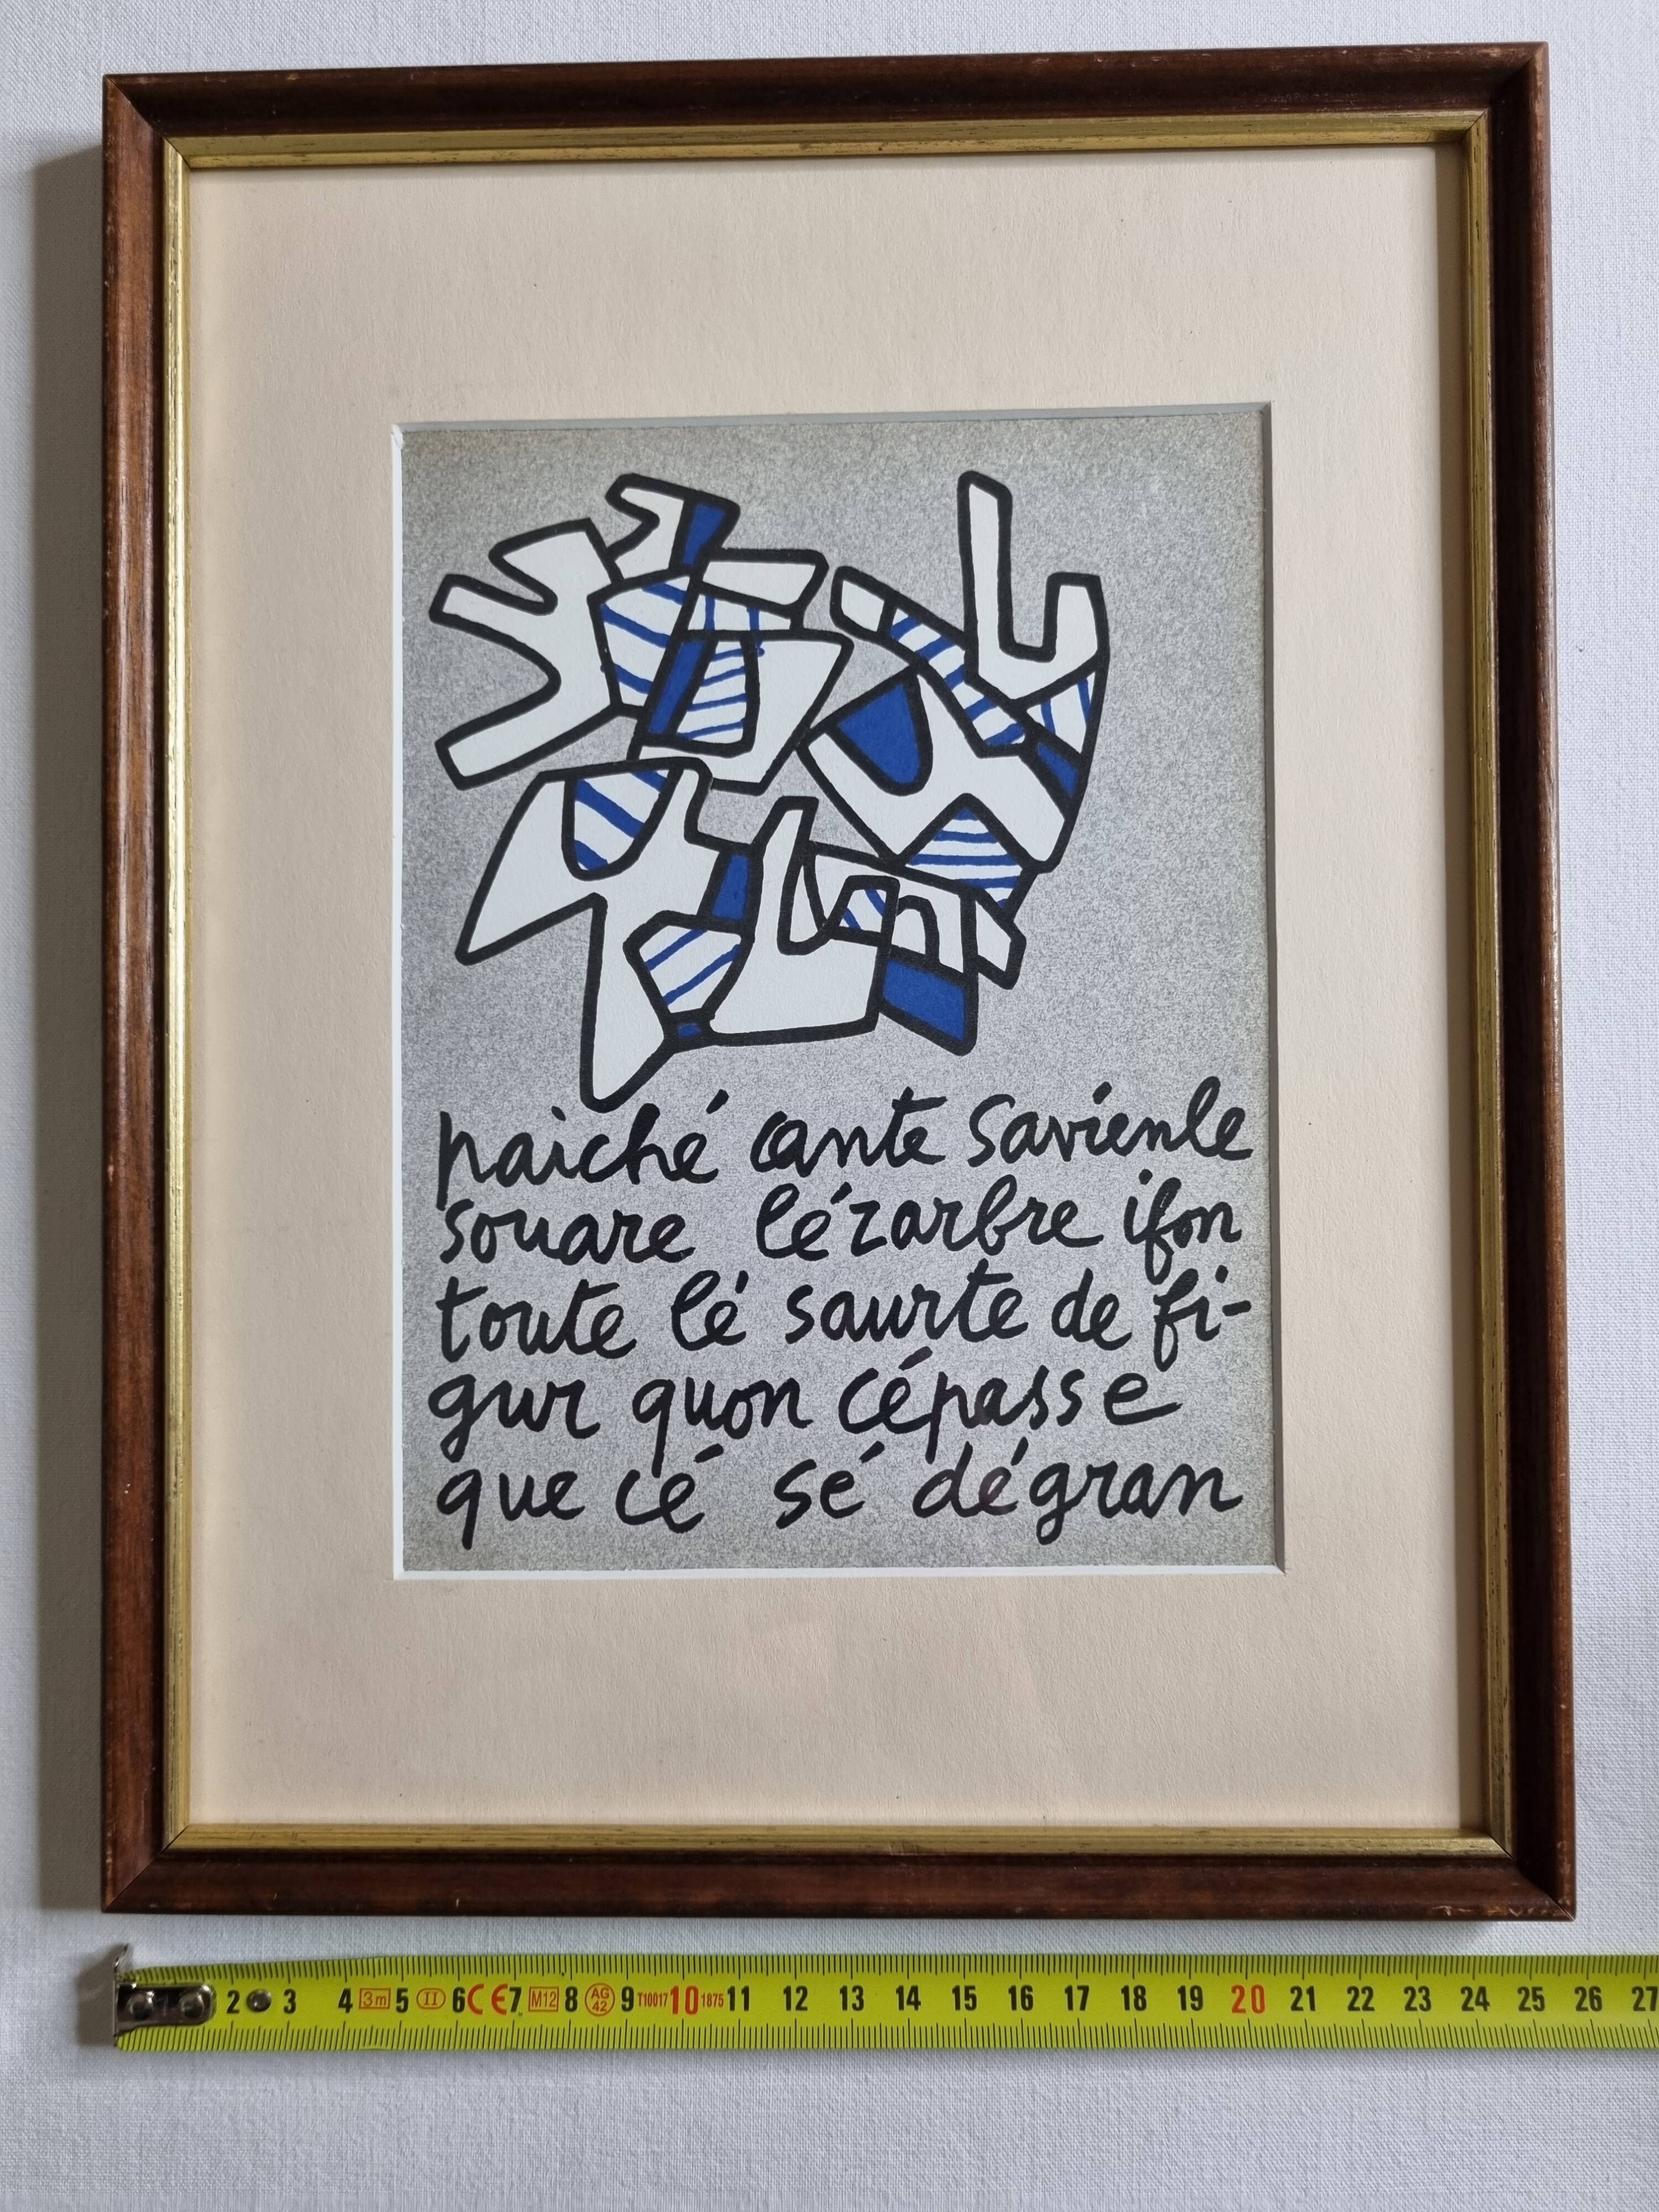 paiché cante savienle
souare lézarbre ifon
toute lé saurte de fi-
gur quon cépasse
que cé sé dégran
2 3 4 3m 5 II 6 CE 7 M12 8 AG 42 9 T10017 10 1875 11 12 13 14 15 16 17 18 19 20 21 22 23 24 25 26 27